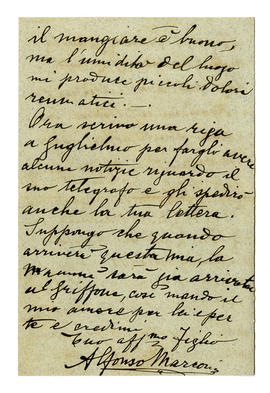 il mangiare è buono,
ma l'umidità del luogo
mi produce piccoli dolori
reumatici. —.
Ora scrivo una riga
a Guglielmo per fargli avere
alcune notizie riguardo il
suo telegrafo e gli spedirò
anche la tua lettera.
Suppongo che quando
arriverà questa mia, la
Mamma sarà già arrivata
al Griffone, così mando il
mio amore per lei e per
te e credimi
Tuo aff.mo Figlio
Alfonso Marconi